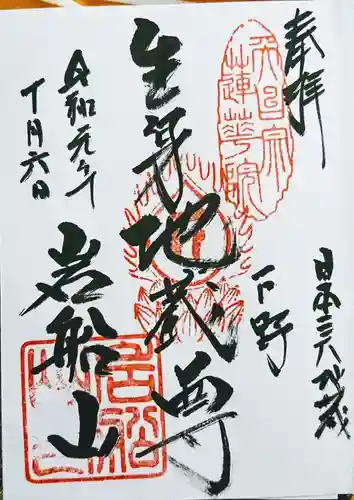 奉拝
天台宗
蓮華院
日本三大地蔵
下野
生身地蔵尊
岩船山
令和元年
十月六日